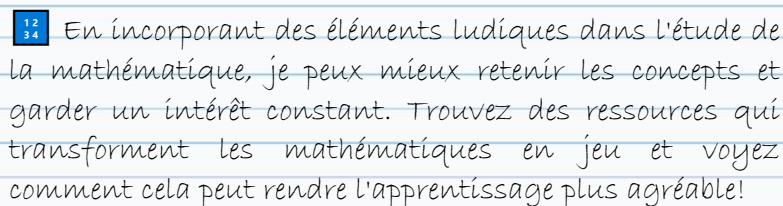 🔢 En incorporant des éléments ludiques dans l'étude de
la mathématique, je peux mieux retenir les concepts et
garder un intérêt constant. Trouvez des ressources qui
transforment les mathématiques en jeu et voyez
comment cela peut rendre l'apprentissage plus agréable!